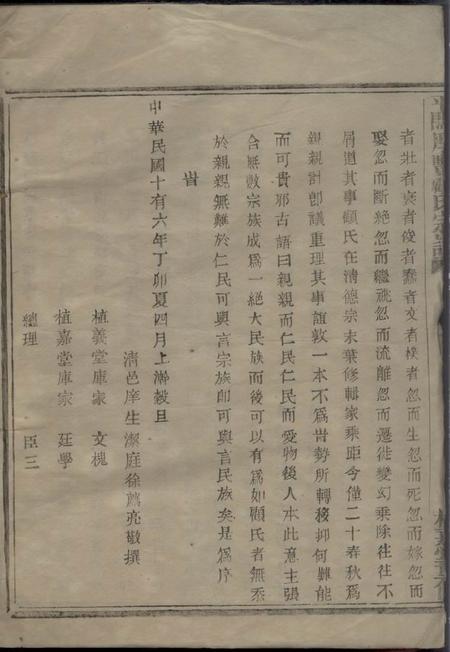 者壯者衰者俊者蠢者文者樸者忽而生忽而死忽而嫁忽而
娶忽而斷絕忽而繼祧忽而流離忽而遷徙變幻乘除往往不
屑道其事顧氏在清德宗末葉修輯家乘距今僅二十春秋爲
親親計卽議重理其事誼敦一本不爲世勢所轉移抑何難能
而可貴邪古語曰親親而仁民仁民而愛物後人本此意主張
合無數宗族成爲一絕大民族而後可以有爲如顧氏者無忝
於親親無難於仁民可與言宗族卽可與言民族矣是爲序
旹
中華民國十有六年丁卯夏四月上澣穀旦
清邑庠生澯庭徐廌亮敬撰
植義堂庫家 文槐
植嘉堂庫家 廷學
總理 臣三